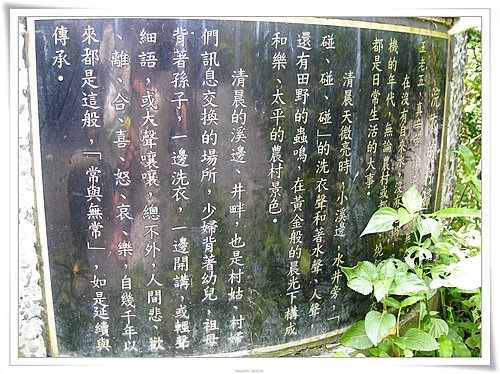 王老五
在沒有自來水，沒有
機的年代，無論農村或
都是日常生活的大事。
清晨天微亮時，小溪邊，水井旁，「
碰、碰、碰」的洗衣聲和著水聲、人聲
還有田野的蟲鳴，在黃金般的晨光下構成
和樂、太平的農村景色。
清晨的溪邊、井畔，也是村姑、村婦
們訊息交換的場所，少婦背著幼兒，祖母
背著孫子，一邊洗衣，一邊開講，或輕聲
細語，或大聲嚷嚷，總不外，人間悲 歡
、離、合、喜、怒、哀 樂，自幾千年以
來都是這般，「常與無常」，如是延續與
傳承。